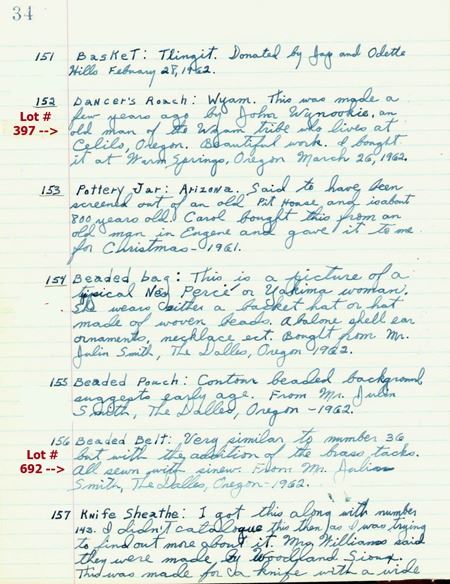 34
151 Basket: Tlingit. Donated by Jay and Odette
Hills February 28, 1962.
152 Dancer's Roach: Wyam. This was made a
Lot # few years ago by John Wynookie, an
397 --> old man of the Wyam tribe who lives at
Celilo, Oregon. Beautiful work. I bought
it at Warm Springs, Oregon March 26, 1962.
153 Pottery Jar: Arizona. Said to have been
screened out of an old Pit House and is about
800 years old. Carol bought this from an
old man in Eugene and gave it to me
for Christmas - 1961.
154 Beaded bag: This is a picture of a
typical Nez Percé or Yakima woman.
She wears either a basket hat or hat
made of woven beads. Abalone shell ear
ornaments, necklace ect. Bought from Mr.
Julin Smith, The Dalles, Oregon 1962.
155 Beaded Pouch: Contour beaded background
suggests early age. From Mr. Julin
Smith, The Dalles, Oregon - 1962.
156 Beaded Belt: Very similar to number 36
Lot # but with the addition of the brass tacks.
692 --> All sewn with sinew. From Mr. Julin
Smith, The Dalles, Oregon - 1962.
157 Knife Sheathe: I got this along with number
143. I didn't catalogue this then as I was trying
to find out more about it. Mrs Williams said
they were made by Woodland Sioux.
This was made for a knife with a wide